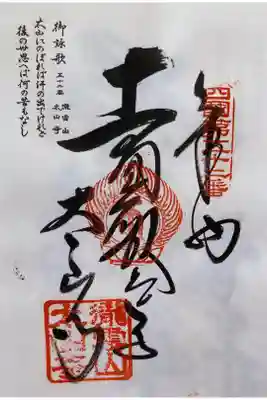 四国第五十二番
奉納
太山寺
御詠歌
五十二番
瀧雲山
太山寺
太山にのぼれば汗の出でけれど
後の世思へば何の苦もなし